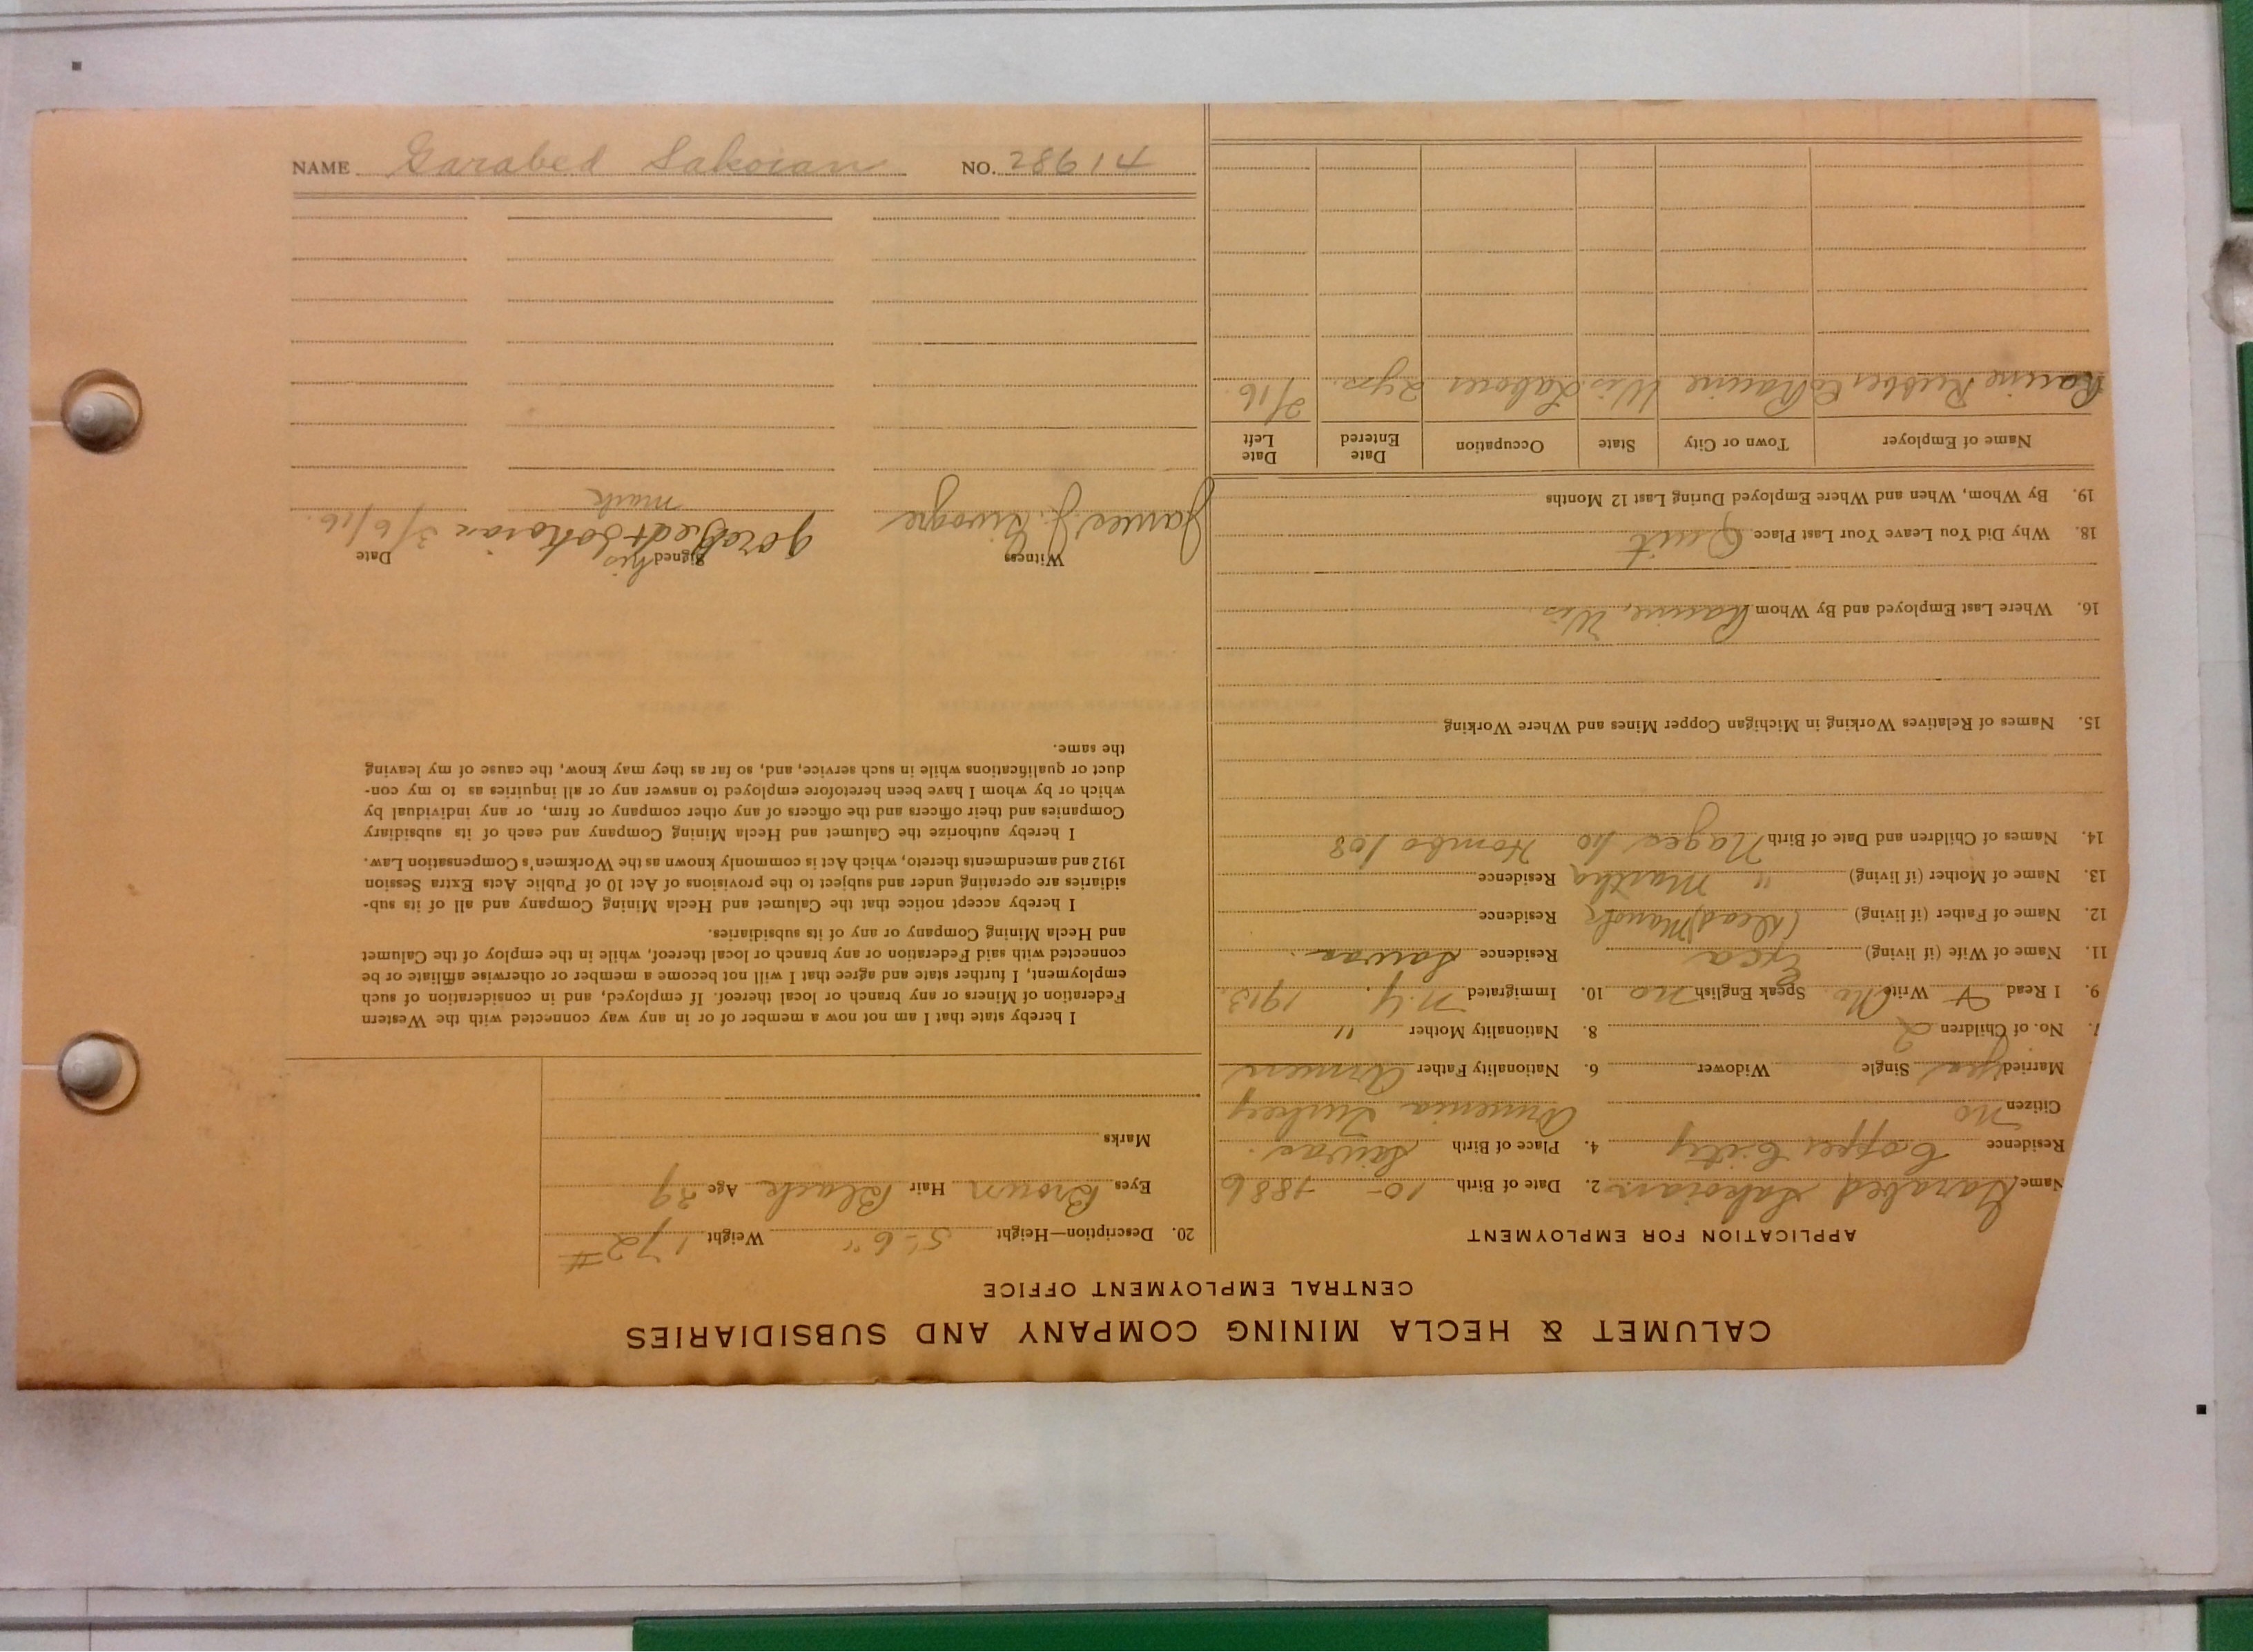 CALUMET & HECLA MINING COMPANY AND SUBSIDIARIES
CENTRAL EMPLOYMENT OFFICE
APPLICATION FOR EMPLOYMENT
Name Garabed Sakoian 2. Date of Birth 10 - - 1886
Residence Copper City 4. Place of Birth Saivas.
Citizen no Armenia Turkey
Married yes Single Widower 6. Nationality Father Armen
7. No. of Children 2 8. Nationality Mother "
9. I Read & Write No. Speak English no 10. Immigrated N.Y. 1913.
11. Name of Wife (if living) Residence Saivas.
12. Name of Father (if living) (dead) Residence
13. Name of Mother (if living) " Maritha Residence
14. Names of Children and Date of Birth
15. Names of Relatives Working in Michigan Copper Mines and Where Working
16. Where Last Employed and By Whom Racine, Wis.
18. Why Did You Leave Your Last Place Quit
19. By Whom, When and Where Employed During Last 12 Months
Name of Employer Town or City State Occupation Date Entered Date Left
Racine Rubber Co Racine Wis. Laborer 2 yrs. 2/16.
20. Description—Height 5'-6" Weight 172 #
Eyes Brown Hair Black Age 29
Marks
I hereby state that I am not now a member of or in any way connected with the Western
Federation of Miners or any branch or local thereof. If employed, and in consideration of such
employment, I further state and agree that I will not become a member or otherwise affiliate or be
connected with said Federation or any branch or local thereof, while in the employ of the Calumet
and Hecla Mining Company or any of its subsidiaries.
I hereby accept notice that the Calumet and Hecla Mining Company and all of its sub-
sidiaries are operating under and subject to the provisions of Act 10 of Public Acts Extra Session
1912 and amendments thereto, which Act is commonly known as the Workmen's Compensation Law.
I hereby authorize the Calumet and Hecla Mining Company and each of its subsidiary
Companies and their officers and the officers of any other company or firm, or any individual by
which or by whom I have been heretofore employed to answer any or all inquiries as to my con-
duct or qualifications while in such service, and, so far as they may know, the cause of my leaving
the same.
Witness Signed Date
his
James J. garabed + Sakoian 3/6/16.
mark
NAME Garabed Sakoian NO. 28614